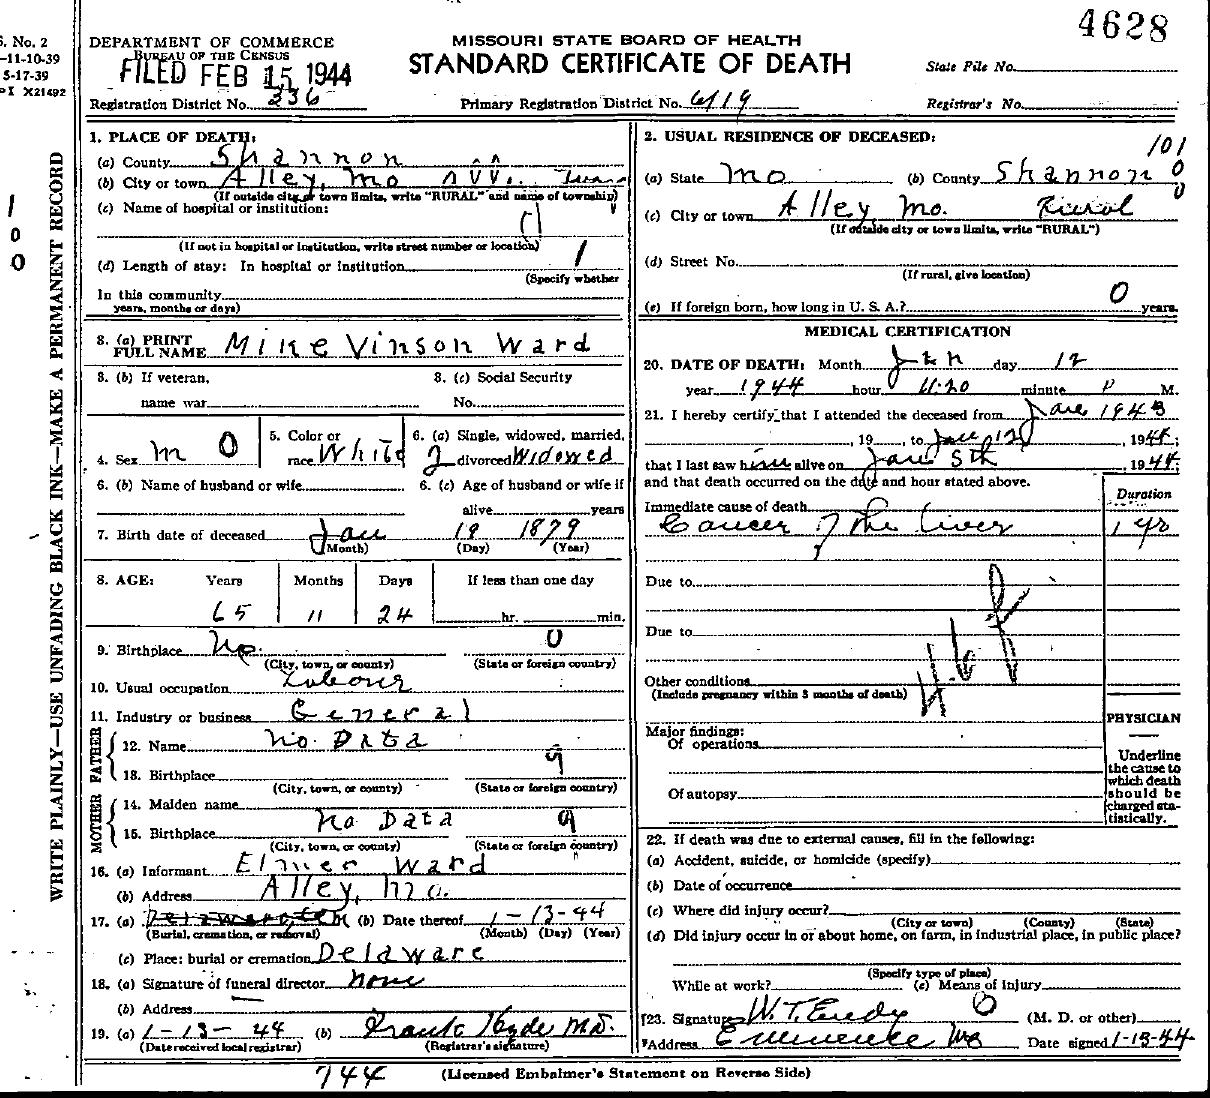 4628
S. No. 2
-11-10-39
5-17-39
PI X21492
DEPARTMENT OF COMMERCE
BUREAU OF THE CENSUS
FILED FEB 15 1944
MISSOURI STATE BOARD OF HEALTH
STANDARD CERTIFICATE OF DEATH
State File No.
Registration District No. 336
Primary Registration District No. 6119
Registrar's No.
WRITE PLAINLY—USE UNFADING BLACK INK—MAKE A PERMANENT RECORD
1
0
0
1. PLACE OF DEATH:
(a) County Shannon
(b) City or town Alley, Mo
(If outside city or town limits, write "RURAL" and name of township)
(c) Name of hospital or institution:
(If not in hospital or institution, write street number or location)
(d) Length of stay: In hospital or institution
(Specify whether
In this community
years, months or days)
3. (a) PRINT FULL NAME Mike Vinson Ward
3. (b) If veteran, name war
3. (c) Social Security No.
4. Sex m 0
5. Color or race White
6. (a) Single, widowed, married, 2 divorced Widowed
6. (b) Name of husband or wife
6. (c) Age of husband or wife if alive years
7. Birth date of deceased Jan 19 1879
(Month) (Day) (Year)
8. AGE: Years Months Days If less than one day
65 11 24 hr. min.
9. Birthplace Mo. 0
(City, town, or county) (State or foreign country)
10. Usual occupation Labour
11. Industry or business General
FATHER
12. Name No. Data
13. Birthplace 9
(City, town, or county) (State or foreign country)
MOTHER
14. Maiden name
15. Birthplace No Data 9
(City, town, or county) (State or foreign country)
16. (a) Informant Elmer Ward
(b) Address Alley, Mo.
17. (a) (b) Date thereof 1-13-44
(Burial, cremation, or removal) (Month) (Day) (Year)
(c) Place: burial or cremation Delaware
18. (a) Signature of funeral director none
(b) Address
19. (a) 1-13-44 (b) Frank Hyde M.D.
(Date received local registrar) (Registrar's signature)
2. USUAL RESIDENCE OF DECEASED:
101
0
0
(a) State Mo (b) County Shannon
(c) City or town Alley, Mo. Rural
(If outside city or town limits, write "RURAL")
(d) Street No.
(If rural, give location)
(e) If foreign born, how long in U. S. A.? 0 years.
MEDICAL CERTIFICATION
20. DATE OF DEATH: Month Jan day 12
year 1944 hour 11:20 minute P M.
21. I hereby certify that I attended the deceased from Jan 1943
, 19 , to Jan 12, 1944;
that I last saw him alive on Jan 5th, 1944;
and that death occurred on the date and hour stated above.
Duration
Immediate cause of death
Cancer of the Liver 1 yr
Due to
Due to
Other conditions
(Include pregnancy within 3 months of death)
PHYSICIAN
Major findings:
Of operations
Of autopsy
Underline the cause to which death should be charged statistically.
22. If death was due to external causes, fill in the following:
(a) Accident, suicide, or homicide (specify)
(b) Date of occurrence
(c) Where did injury occur?
(City or town) (County) (State)
(d) Did injury occur in or about home, on farm, in industrial place, in public place?
(Specify type of place)
While at work? (e) Means of injury
23. Signature W. T. Eudy 0 (M. D. or other)
Address Eminence Mo Date signed 1-13-44
744
(Licensed Embalmer's Statement on Reverse Side)